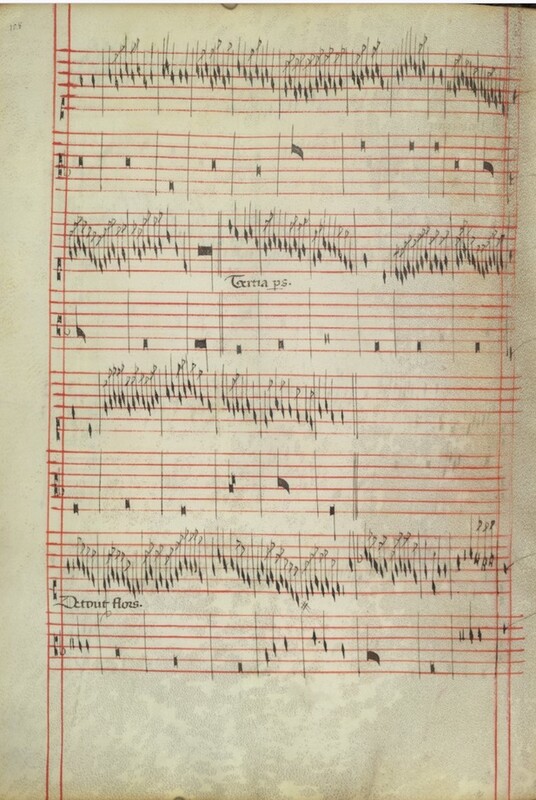 Tertia ps.
De tout flors.